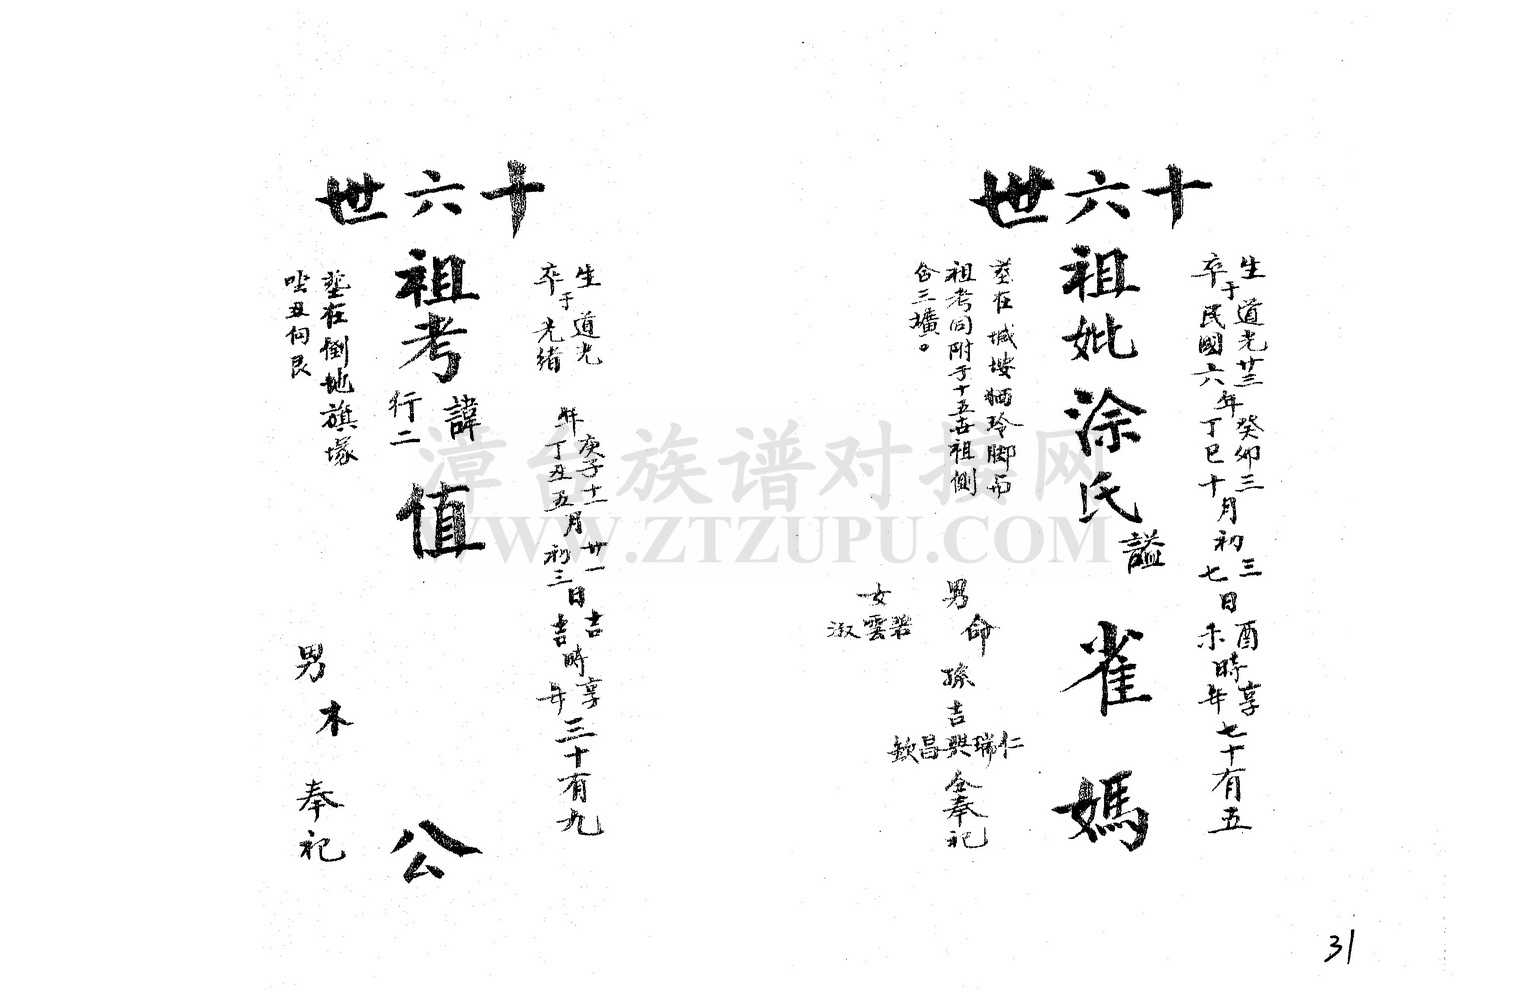 十六世
生于道光廿三年癸卯三月初三日酉時享年七十有五
卒于民國六年丁巳十月初七日未時
祖妣涂氏謚雀媽
塟在城墘牺玲脚与
祖考同附于十五世祖側
合三壙。
男命
孫吉
仁瑞興昌欽
仝奉祀
女
碧雲淑
十六世
生于道光年庚子十一月廿一日吉時享年三十有九
卒于光緒年丁丑五月初三日吉時
祖考諱值公
行二
塟在倒地旗塚
坐丑向艮
男木奉祀
漳台族谱对接网
WWW.ZTZUPU.COM
31